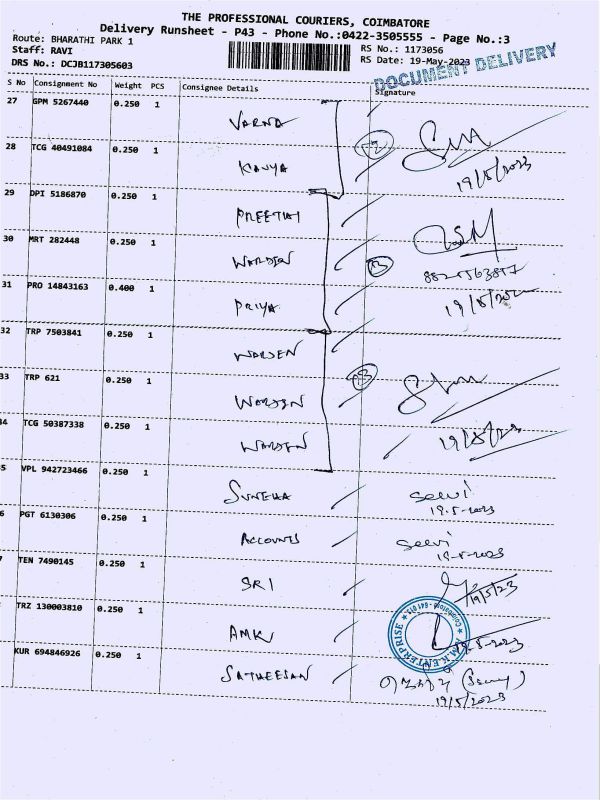 THE PROFESSIONAL COURIERS, COIMBATORE
Delivery Runsheet - P43 - Phone No.:0422-3505555 - Page No.:3
Route: BHARATHI PARK 1
RS No.: 1173056
Staff: RAVI
RS Date: 19-May-2023
DRS No.: DCJB117305603
DOCUMENT DELIVERY
S No Consignment No Weight PCS Consignee Details Signature
27 GPM 5267440 0.250 1 VARNA
28 TCG 40491084 0.250 1 KAVYA
19/5/2023
29 DPI 5186870 0.250 1 PREETHI
30 MRT 282448 0.250 1 WARDEN
31 PRO 14843163 0.400 1 PRIYA
32 TRP 7503841 0.250 1 WARDEN
33 TRP 621 0.250 1 WARDEN
34 TCG 50387338 0.250 1 WARDEN
19/5/23
5 VPL 942723466 0.250 1 SUNEHA Selvi
19-5-2023
6 PGT 6130306 0.250 1 ACCOUNTS Selvi
19-5-2023
7 TEN 7490145 0.250 1 SRI
19/5/23
TRZ 130003810 0.250 1 AMK
19-5-2023
M.K ENTERPRISE
Coimbatore - 641 015
KUR 694846926 0.250 1 SATHEESAN
19/5/2023